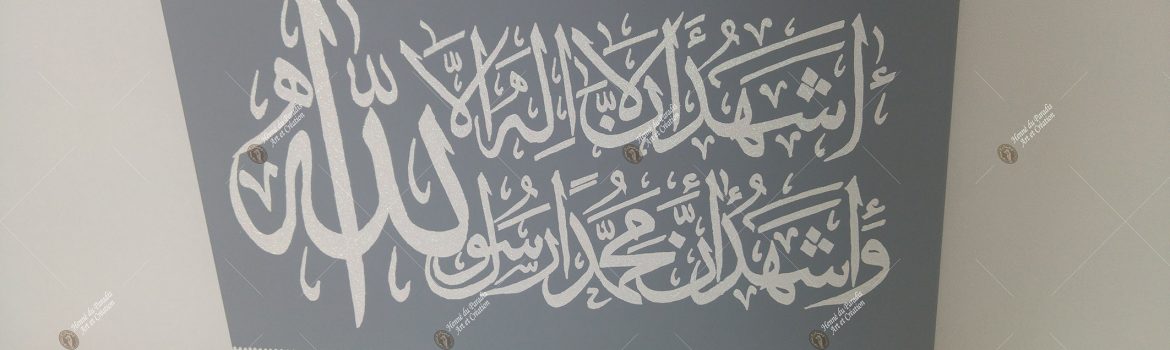 إشهد أن لا إله إلا الله
وأشهد أن محمدا رسول الله
Henné du Paradis
Art et Création
Henné du Paradis
Art et Création
Henné du Paradis
Art et Création
Henné du Paradis
Art et Création
Henné du Paradis
Art et Création
Henné du Paradis
Art et Création